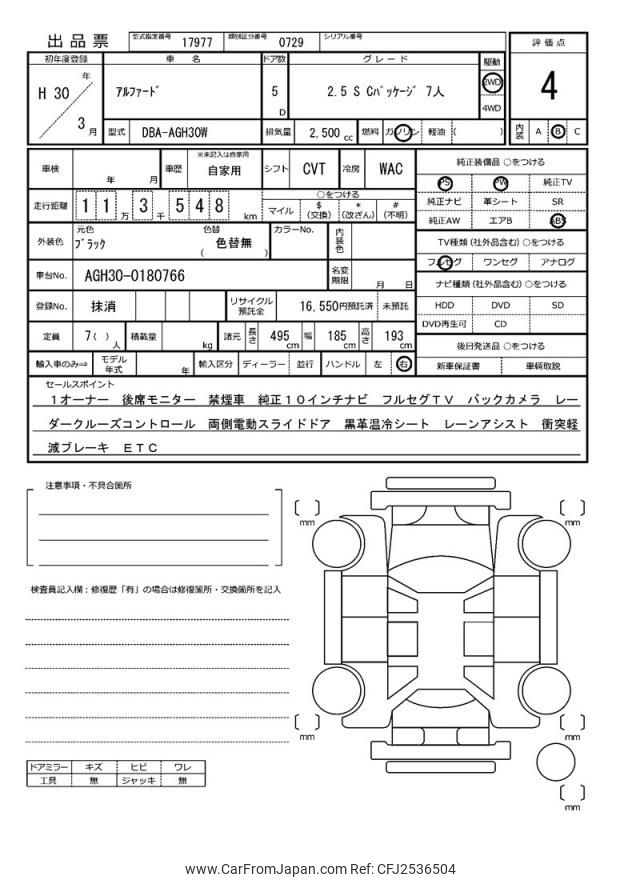 出品票 型式指定番号 17977 類別区分番号 0729 シリアル番号
評価点
初年度登録 車名 ドア数 グレード 駆動
H 30 年 3 月 アルファード 5 D 2.5 S Cパッケージ 7人 2WD 4WD
4
型式 DBA-AGH30W 排気量 2,500 cc 燃料 ガソリン 軽油 ( )
内装 A B C
車検 年 月 車歴 ※未記入は自家用 自家用 シフト CVT 冷房 WAC
純正装備品 ○をつける
PS PW 純正TV
純正ナビ 革シート SR
純正AW エアB ABS
走行距離 1 1 万 3 千 5 4 8 km
○をつける
マイル $ (交換) * (改ざん) # (不明)
外装色 元色 ブラック 色替 色替無 ( ) カラーNo. 内装色
TV種類 (社外品含む) ○をつける
フルセグ ワンセグ アナログ
車台No. AGH30-0180766 名変期限 月 日
ナビ種類 (社外品含む) ○をつける
HDD DVD SD
DVD再生可 CD
登録No. 抹消 リサイクル預託金 16,550円預託済 未預託
定員 7( ) 人 積載量 kg 諸元 長さ 495 cm 幅 185 cm 高さ 193 cm
後日発送品 ○をつける
新車保証書 車輌取説
輸入車のみ⇒ モデル年式 年 輸入区分 ディーラー 並行 ハンドル 左 右
セールスポイント
1オーナー 後席モニター 禁煙車 純正10インチナビ フルセグTV バックカメラ レー
ダークルーズコントロール 両側電動スライドドア 黒革温冷シート レーンアシスト 衝突軽
減ブレーキ ETC
注意事項・不具合箇所
検査員記入欄：修復歴「有」の場合は修復箇所・交換箇所を記入
mm
mm
mm
mm
mm
ドアミラー キズ ヒビ ワレ
工具 無 ジャッキ 無
www.CarFromJapan.com Ref: CFJ2536504